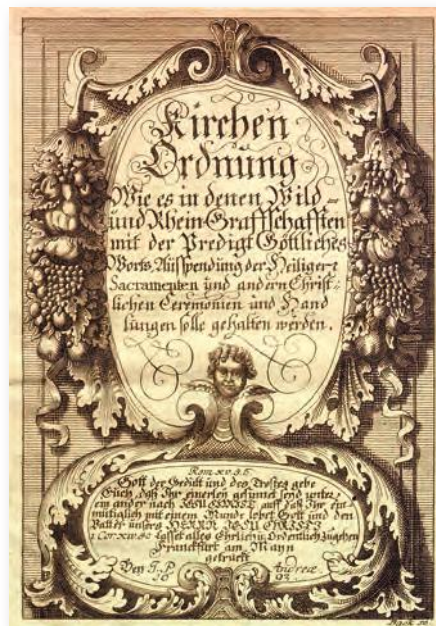 Kirchen
Ordnung
Wie es in denen Wild-
und Rhein-Graffschafften
mit der Predigt Göttliches
Worts, Außspendung der Heiligen
Sacramenten und andern Christ-
lichen Ceremonien und Hand
lungen solle gehalten werden.
Rom. XV. 5. 6.
Gott der Gedult und des Trostes gebe
Euch, daß Ihr einerley gesinnet seyd unter
ein ander nach JESU CHRISTO auff daß Ihr ein
mütiglich mit einem Munde lobet Gott und den
Vatter unsers HERRN JESU CHRISTI
1 Cor. XIV. 40 Lasset alles Ehrlich u. Ordentlich zugehen
Franckfurt am Mayn
gedruckt
Bey J. P. Andreæ
16 93.